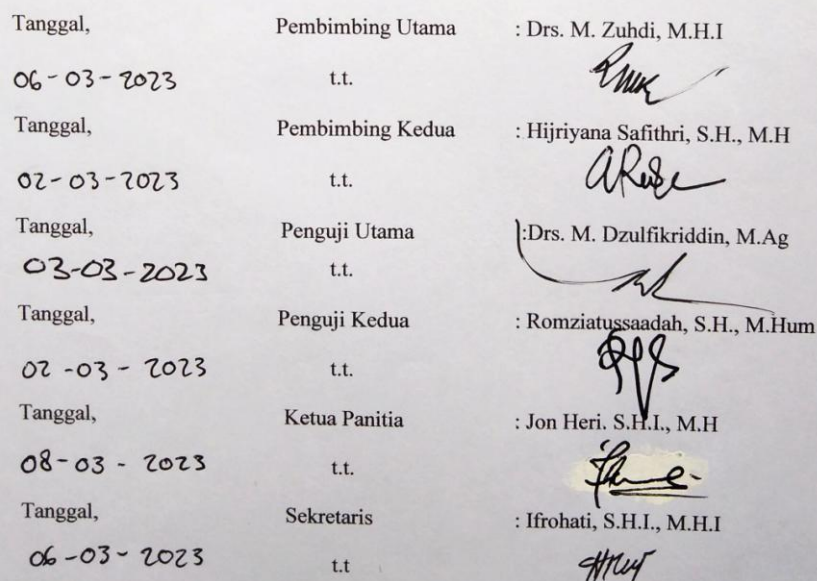 Tanggal, Pembimbing Utama : Drs. M. Zuhdi, M.H.I
06-03-2023 t.t.
Tanggal, Pembimbing Kedua : Hijriyana Safithri, S.H., M.H
02-03-2023 t.t.
Tanggal, Penguji Utama :Drs. M. Dzulfikriddin, M.Ag
03-03-2023 t.t.
Tanggal, Penguji Kedua : Romziatussaadah, S.H., M.Hum
02-03-2023 t.t.
Tanggal, Ketua Panitia : Jon Heri. S.H.I., M.H
08-03-2023 t.t.
Tanggal, Sekretaris : Ifrohati, S.H.I., M.H.I
06-03-2023 t.t